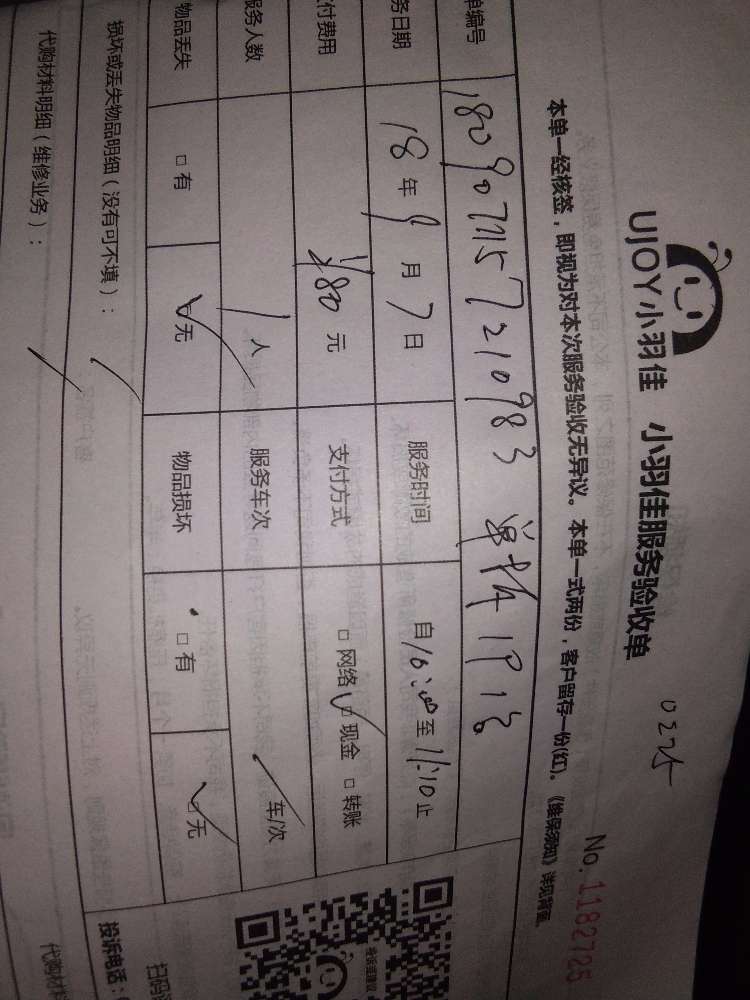 UJOY小羽佳 小羽佳服务验收单
0225
No.11827725
本单一经核签，即视为对本次服务验收无异议。本单一式两份，客户留存一份(红)。《维保须知》详见背面。
单编号 180907157210983
务日期 18年9月7日 服务时间 自10:00至11:10止
付费用 ¥80元 支付方式 □网络 ☑现金 □转账
服务人数 1人 服务车次 / 车/次
物品丢失 □有 ☑无 物品损坏 □有 ☑无
损坏或丢失物品明细（没有可不填）： /
代购材料明细（维修业务）： /
投诉建议
扫码
投诉电话：
代购材料